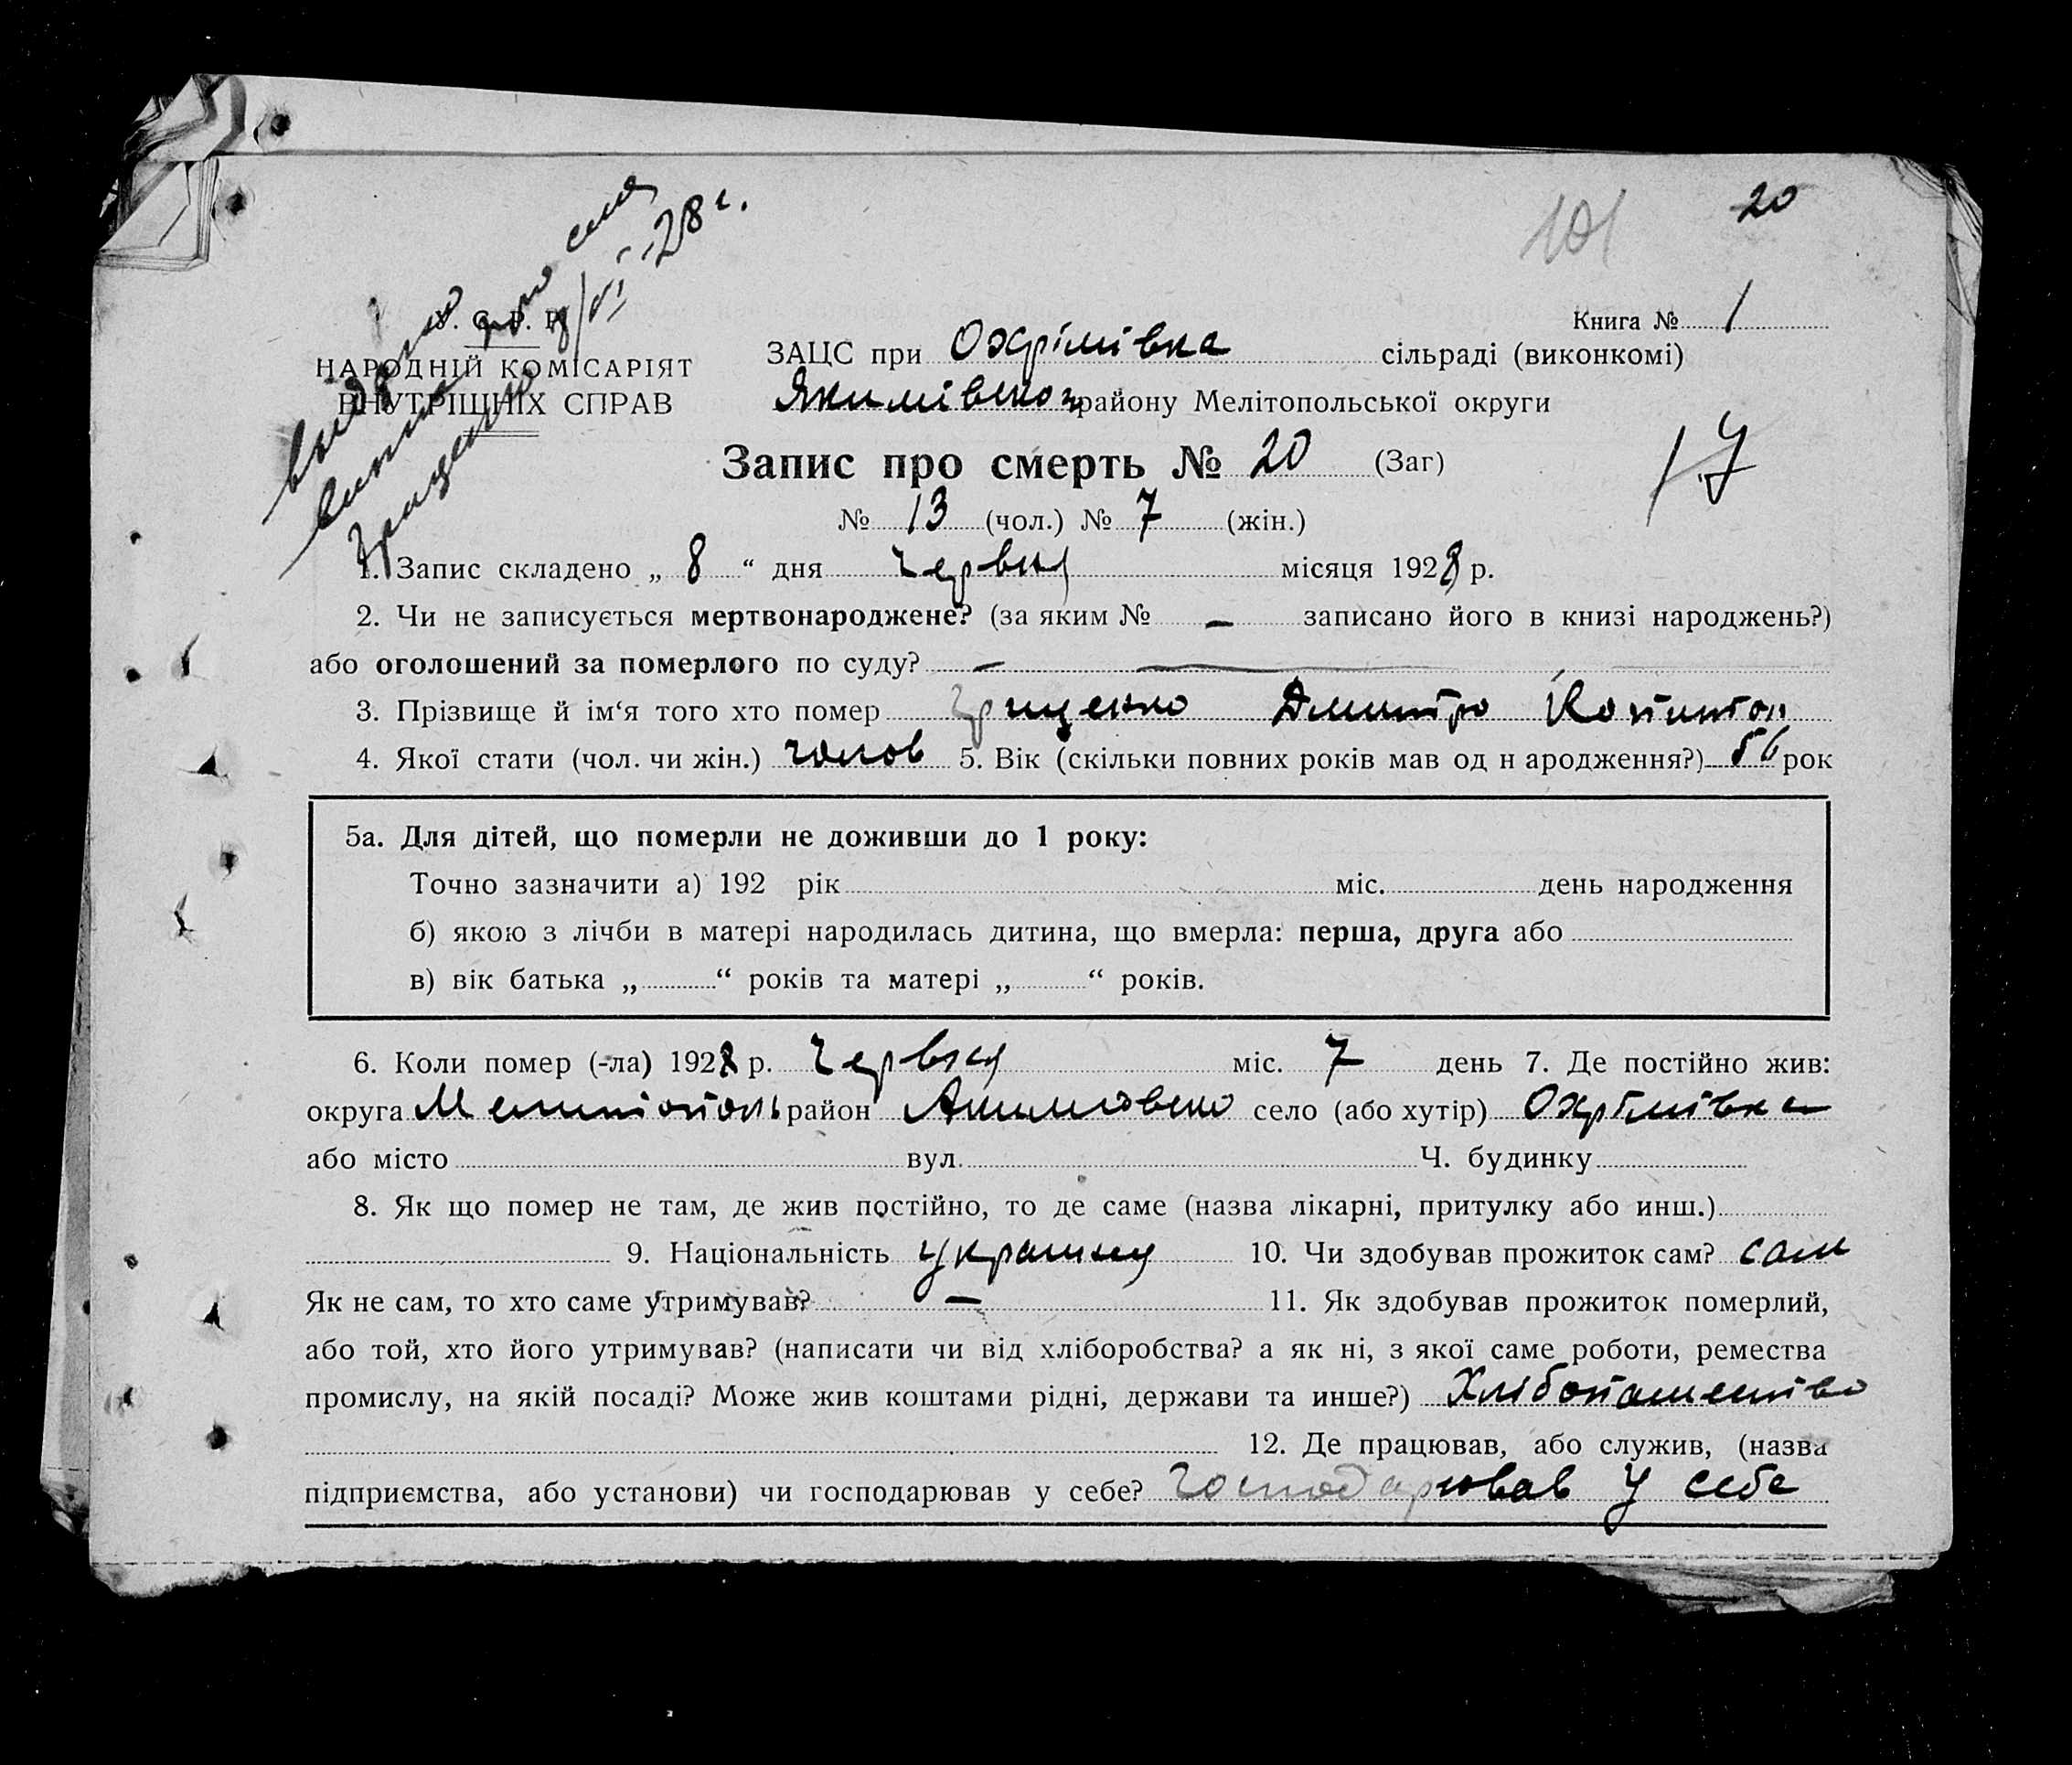 20
101
видано
виписа про смл
Грищенко 8/VI-28 г.
У. С. Р. Р.
НАРОДНІЙ КОМІСАРІЯТ
ВНУТРІШНІХ СПРАВ
Книга № 1
ЗАЦС при Охрімівка сільраді (виконкомі)
Якимівсько району Мелітопольської округи
17
Запис про смерть № 20 (Заг)
№ 13 (чол.) № 7 (жін.)
1. Запис складено „ 8 “ дня червня місяця 1928 р.
2. Чи не записується мертвонароджене? (за яким № — записано його в книзі народжень?)
або оголошений за померлого по суду? —
3. Прізвище й ім‘я того хто помер Грищенко Дмитро
4. Якої стати (чол. чи жін.) чолов 5. Вік (скільки повних років мав од н ародження?) 56 рок
5а. Для дітей, що померли не доживши до 1 року:
Точно зазначити а) 192 рік міс. день народження
б) якою з лічби в матері народилась дитина, що вмерла: перша, друга або
в) вік батька „ “ років та матері „ “ років.
6. Коли помер (-ла) 1928 р. червня міс. 7 день 7. Де постійно жив:
округа Мелитополь район Акимовско село (або хутір) Охрімівка
або місто вул. Ч. будинку
8. Як що помер не там, де жив постійно, то де саме (назва лікарні, притулку або инш.)
9. Національність украинц 10. Чи здобував прожиток сам? сам
Як не сам, то хто саме утримував? — 11. Як здобував прожиток померлий,
або той, хто його утримував? (написати чи від хліборобства? а як ні, з якої саме роботи, ремества
промислу, на якій посаді? Може жив коштами рідні, держави та инше?) Хлібопашество
12. Де працював, або служив, (назва
підприємства, або установи) чи господарював у себе? Господарював у себе